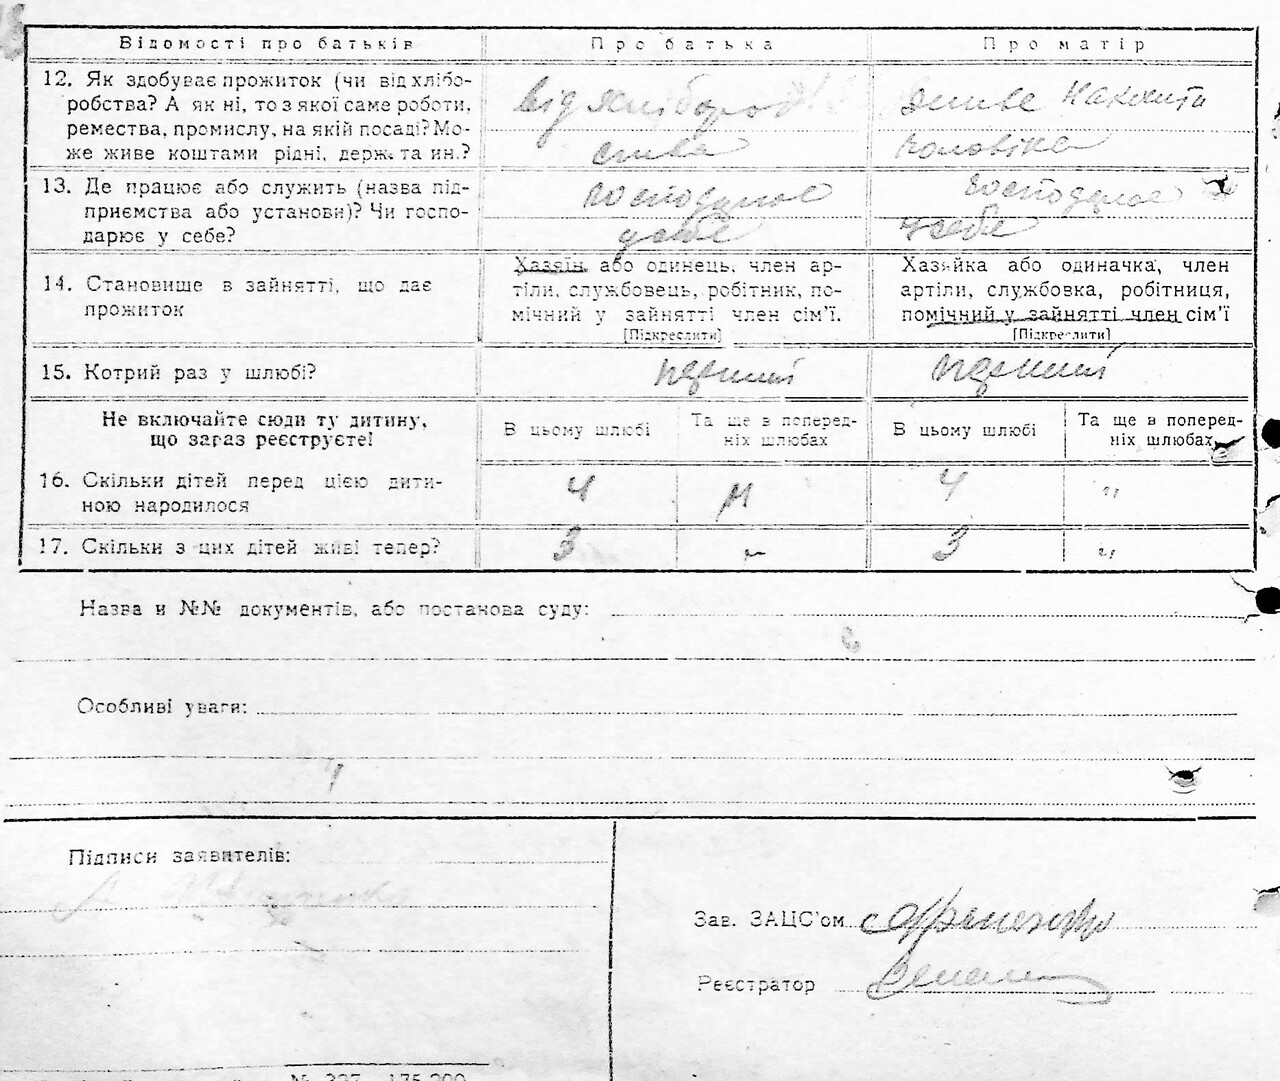 Відомості про батьків Про батька Про матір
12. Як здобуває прожиток (чи від хлібо-
робства? А як ні, то з якої саме роботи,
ремества, промислу, на якій посаді? Мо-
же живе коштами рідні, держ. та ин.?
від хліборобства
живе на кошти
чоловіка
13. Де працює або служить (назва під-
приємства або установи)? Чи госпо-
дарює у себе?
господарює
у себе
господарює
у себе
14. Становище в зайнятті, що дає
прожиток
Хазяїн або одинець, член ар-
тіли, службовець, робітник, по-
мічний у зайнятті член сім'ї.
[Підкреслити]
Хазяйка або одиначка, член
артіли, службовка, робітниця,
помічний у зайнятті член сім'ї
[Підкреслити]
15. Котрий раз у шлюбі? перший перший
Не включайте сюди ту дитину,
що зараз реєструєте!
В цьому шлюбі
Та ще в поперед-
ніх шлюбах
В цьому шлюбі
Та ще в поперед-
ніх шлюбах
16. Скільки дітей перед цією дити-
ною народилося
4 4 "
17. Скільки з цих дітей живі тепер? 3 3 "
Назва и №№ документів, або постанова суду:
Особливі уваги:
Підписи заявителів:
Зав. ЗАЦС'ом
Реєстратор
№ 327 175.000